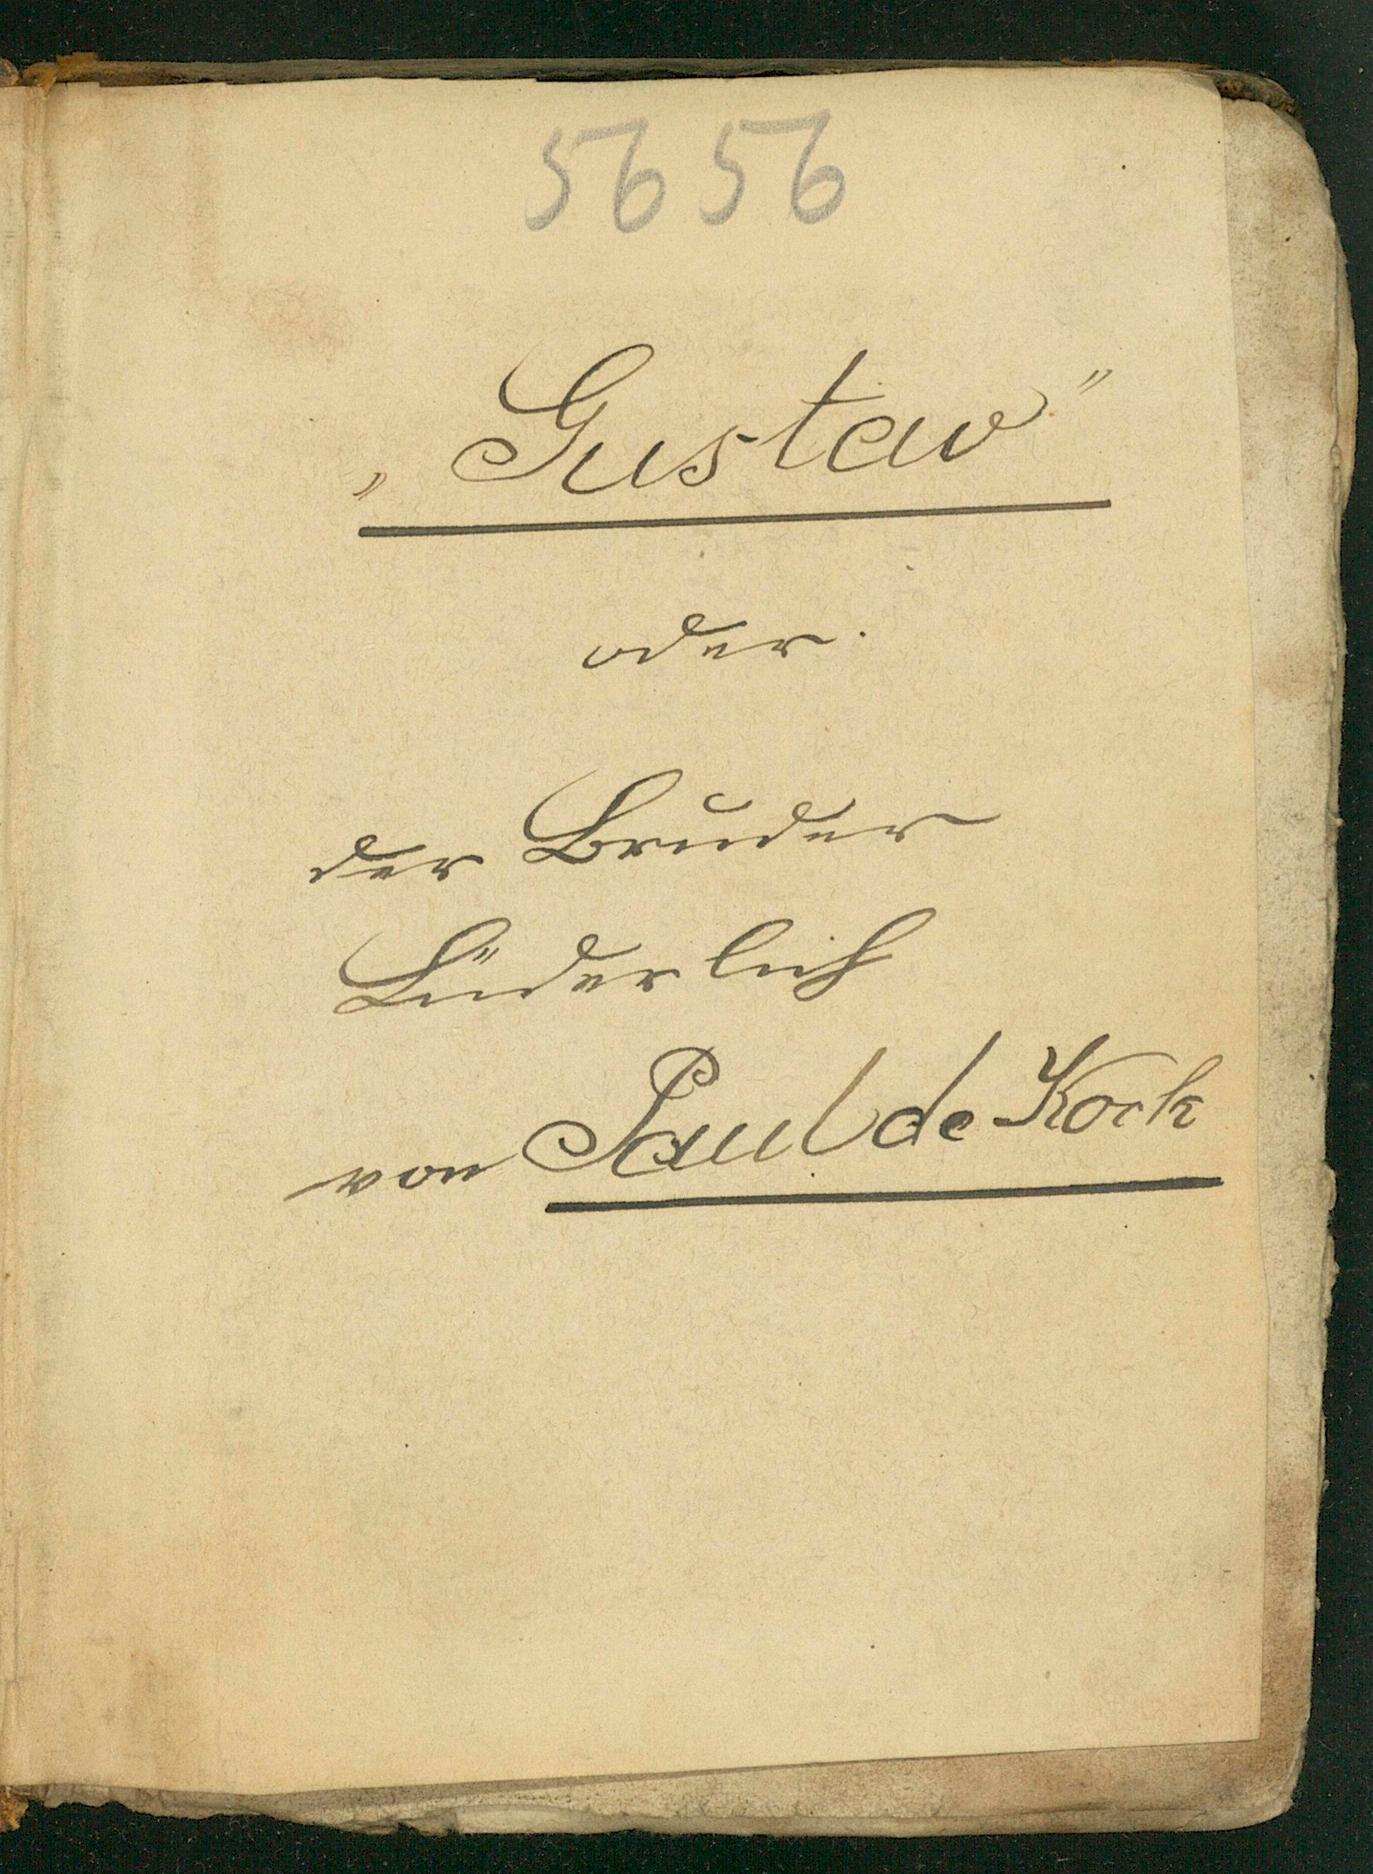 5656
„Gustav"
oder
der Bruder
Lüderlich
von Paul de Kock